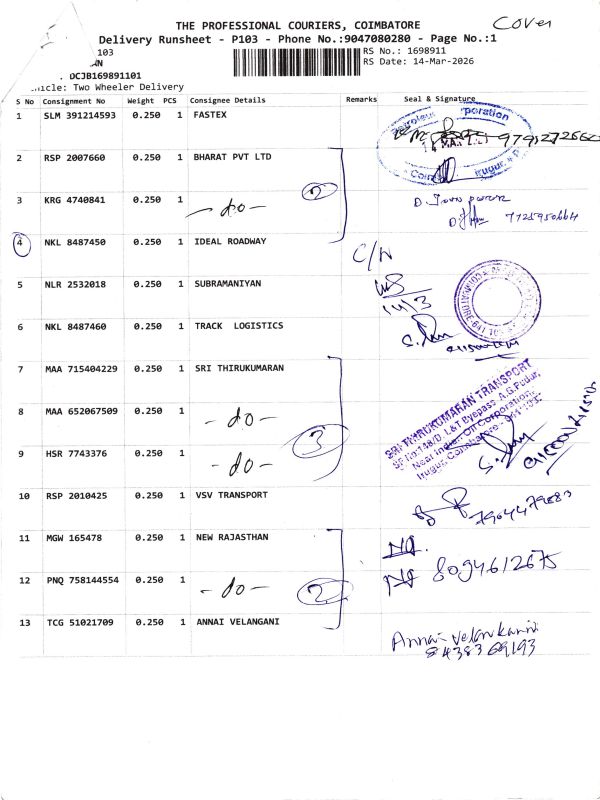 THE PROFESSIONAL COURIERS, COIMBATORE
Cover
Delivery Runsheet - P103 - Phone No.:9047080280 - Page No.:1
103
RS No.: 1698911
AN
RS Date: 14-Mar-2026
. DCJB169891101
icle: Two Wheeler Delivery
S No Consignment No Weight PCS Consignee Details Remarks Seal & Signature
1 SLM 391214593 0.250 1 FASTEX
2 RSP 2007660 0.250 1 BHARAT PVT LTD
3 KRG 4740841 0.250 1 - do - 2
7725950664
4 NKL 8487450 0.250 1 IDEAL ROADWAY C/N
5 NLR 2532018 0.250 1 SUBRAMANIYAN
14/3
6 NKL 8487460 0.250 1 TRACK LOGISTICS
7 MAA 715404229 0.250 1 SRI THIRUKUMARAN
SRI THIRUKUMARAN TRANSPORT
SF No:148/D, L&T Byepass, A.G.Pudur,
Near Indian Oil Corporation,
Irugur, Coimbatore -
8 MAA 652067509 0.250 1 - do -
9 HSR 7743376 0.250 1 - do - 3
10 RSP 2010425 0.250 1 VSV TRANSPORT
7904479883
11 MGW 165478 0.250 1 NEW RAJASTHAN
8094612675
12 PNQ 758144554 0.250 1 - do - 2
13 TCG 51021709 0.250 1 ANNAI VELANGANI
Annai velankanni
8438369193